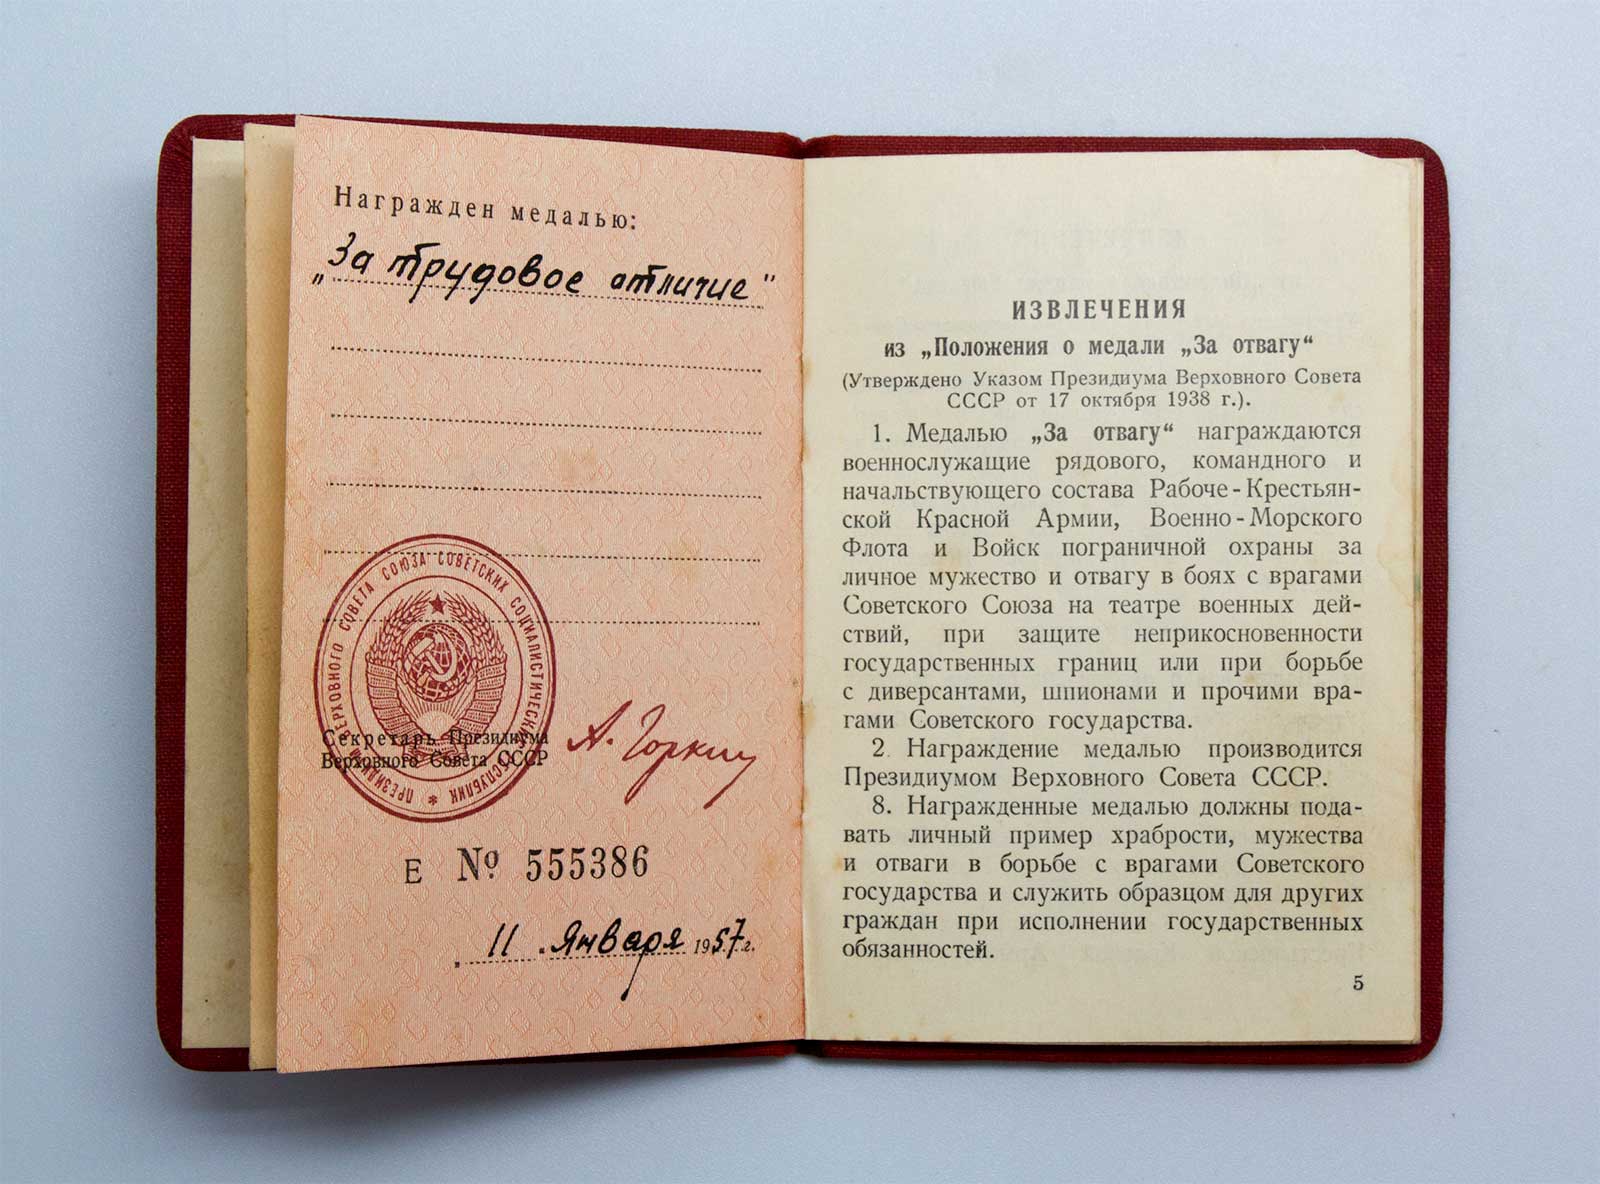 Награжден медалью:
„За трудовое отличие"
ПРЕЗИДИУМ ВЕРХОВНОГО СОВЕТА СОЮЗА СОВЕТСКИХ СОЦИАЛИСТИЧЕСКИХ РЕСПУБЛИК *
Секретарь Президиума
Верховного Совета СССР
А. Горкин
Е № 555386
„11 „ Января 1957 г.
ИЗВЛЕЧЕНИЯ
из „Положения о медали „За отвагу“
(Утверждено Указом Президиума Верховного Совета
СССР от 17 октября 1938 г.).
1. Медалью „За отвагу“ награждаются
военнослужащие рядового, командного и
начальствующего состава Рабоче-Крестьян-
ской Красной Армии, Военно-Морского
Флота и Войск пограничной охраны за
личное мужество и отвагу в боях с врагами
Советского Союза на театре военных дей-
ствий, при защите неприкосновенности
государственных границ или при борьбе
с диверсантами, шпионами и прочими вра-
гами Советского государства.
2. Награждение медалью производится
Президиумом Верховного Совета СССР.
8. Награжденные медалью должны пода-
вать личный пример храбрости, мужества
и отваги в борьбе с врагами Советского
государства и служить образцом для других
граждан при исполнении государственных
обязанностей.
5